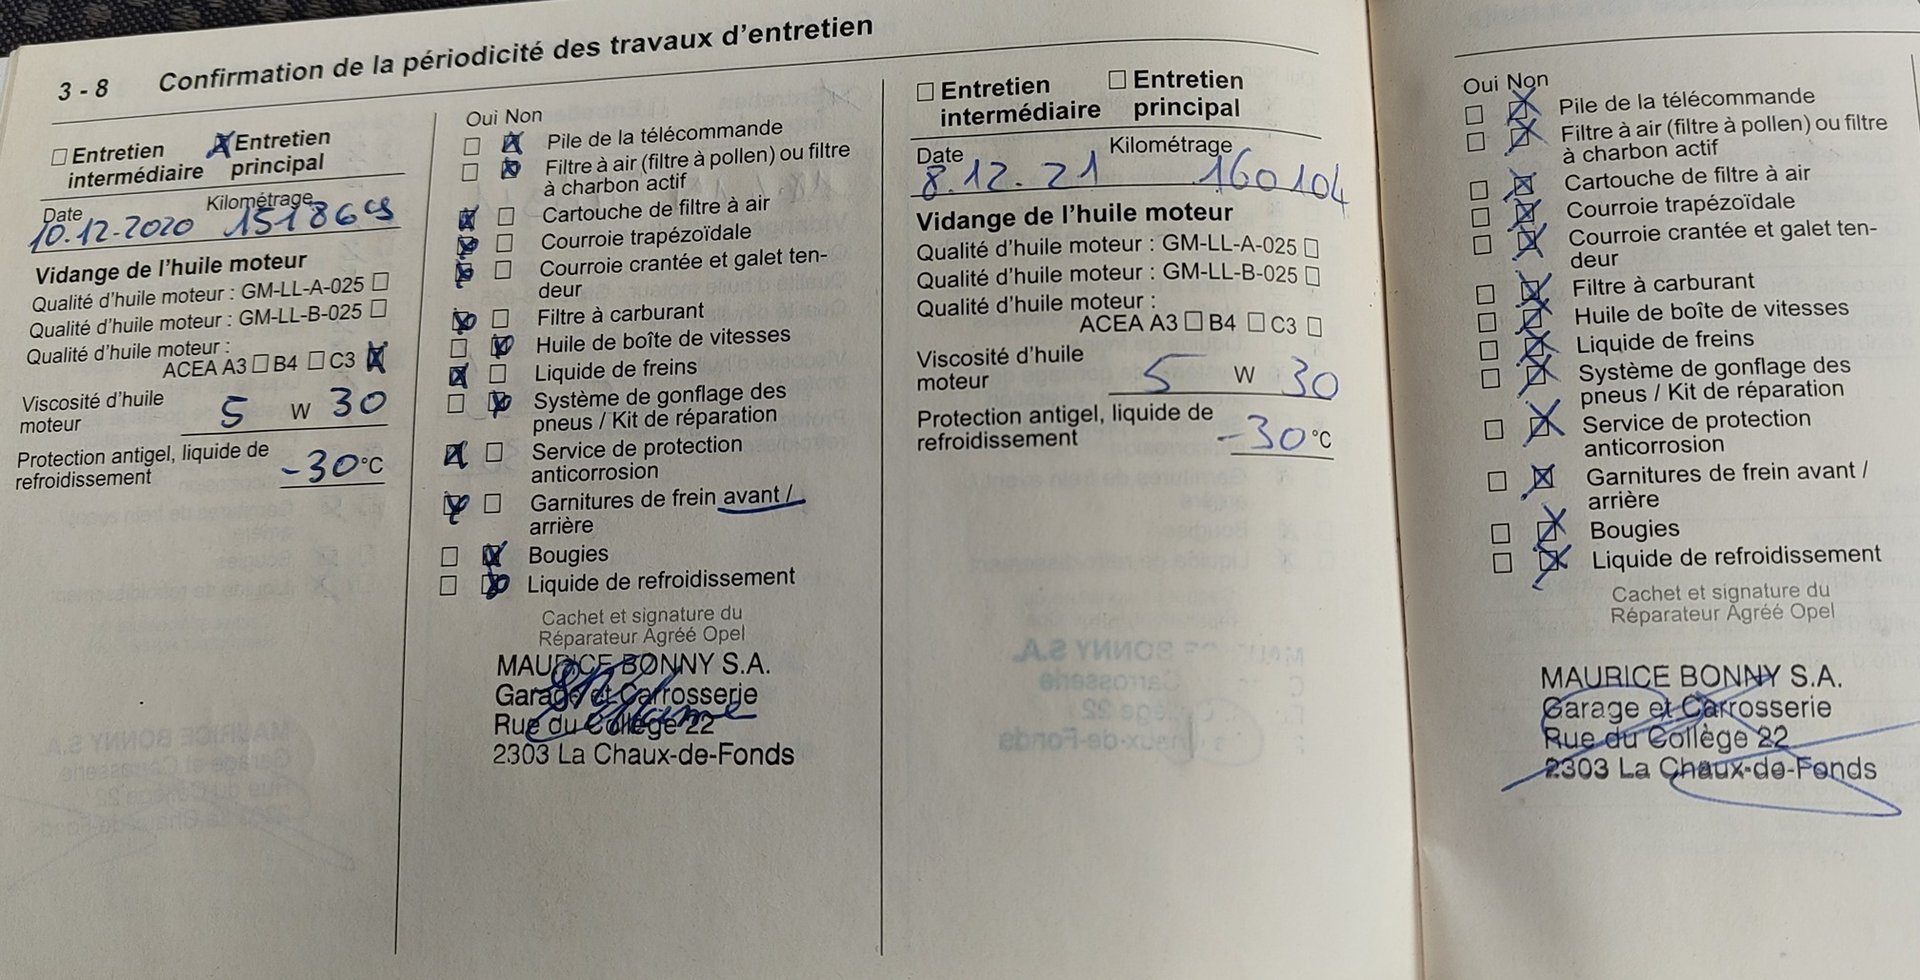 3 - 8 Confirmation de la périodicité des travaux d'entretien
Entretien intermédiaire
Entretien principal
Date
Kilométrage
10.12.2020
Vidange de l'huile moteur
Qualité d'huile moteur : GM-LL-A-025
Qualité d'huile moteur : GM-LL-B-025
Qualité d'huile moteur :
ACEA A3 B4 C3
Viscosité d'huile
moteur 5 W 30
Protection antigel, liquide de
refroidissement -30°C
Oui Non
Pile de la télécommande
Filtre à air (filtre à pollen) ou filtre
à charbon actif
Cartouche de filtre à air
Courroie trapézoïdale
Courroie crantée et galet ten-
deur
Filtre à carburant
Huile de boîte de vitesses
Liquide de freins
Système de gonflage des
pneus / Kit de réparation
Service de protection
anticorrosion
Garnitures de frein avant /
arrière
Bougies
Liquide de refroidissement
Cachet et signature du
Réparateur Agréé Opel
MAURICE BONNY S.A.
Garage et Carrosserie
Rue du Collège 22
2303 La Chaux-de-Fonds
Entretien intermédiaire
Entretien principal
Date
Kilométrage
8.12.21 160104
Vidange de l'huile moteur
Qualité d'huile moteur : GM-LL-A-025
Qualité d'huile moteur : GM-LL-B-025
Qualité d'huile moteur :
ACEA A3 B4 C3
Viscosité d'huile
moteur 5 W 30
Protection antigel, liquide de
refroidissement -30°C
Oui Non
Pile de la télécommande
Filtre à air (filtre à pollen) ou filtre
à charbon actif
Cartouche de filtre à air
Courroie trapézoïdale
Courroie crantée et galet ten-
deur
Filtre à carburant
Huile de boîte de vitesses
Liquide de freins
Système de gonflage des
pneus / Kit de réparation
Service de protection
anticorrosion
Garnitures de frein avant /
arrière
Bougies
Liquide de refroidissement
Cachet et signature du
Réparateur Agréé Opel
MAURICE BONNY S.A.
Garage et Carrosserie
Rue du Collège 22
2303 La Chaux-de-Fonds